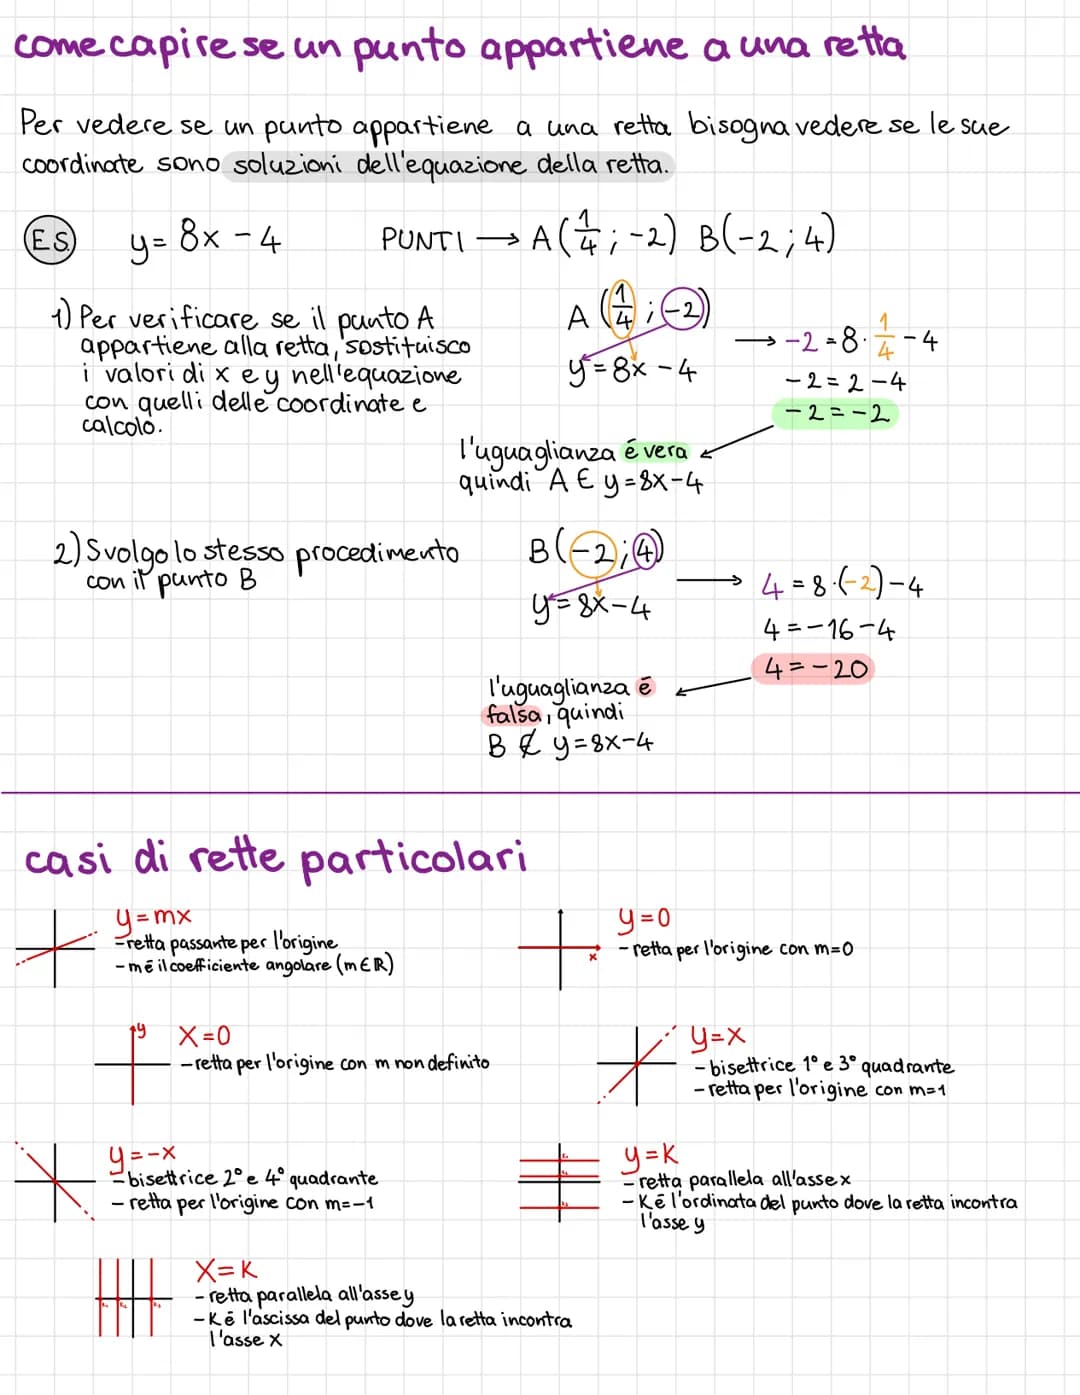 come capire se un punto appartiene a una retta
Per vedere se un punto appartiene a una retta bisogna vedere se le sue
coordinate sono soluzioni dell'equazione della retta.
ES y = 8x - 4 PUNTI → A(1/4; -2) B(-2; 4)
1) Per verificare se il punto A
appartiene alla retta, sostituisco
i valori di x e y nell'equazione
con quelli delle coordinate e
calcolo.
A (1/4; -2)
y = 8x - 4
→ -2 = 8 · 1/4 - 4
-2 = 2 - 4
-2 = -2
l'uguaglianza é vera
quindi A ∈ y = 8x - 4
2) Svolgo lo stesso procedimento
con il punto B
B(-2; 4)
y = 8x - 4
→ 4 = 8 · (-2) - 4
4 = -16 - 4
4 = -20
l'uguaglianza ē
falsa, quindi
B ∉ y = 8x - 4
casi di rette particolari
y = mx
- retta passante per l'origine
- m ē il coefficiente angolare (m ∈ R)
x
y = 0
- retta per l'origine con m = 0
y
X = 0
- retta per l'origine con m non definito
y = x
- bisettrice 1° e 3° quadrante
- retta per l'origine con m = 1
y = -x
- bisettrice 2° e 4° quadrante
- retta per l'origine con m = -1
y = K
- retta parallela all'asse x
- K ē l'ordinata del punto dove la retta incontra
l'asse y
X = K
- retta parallela all'asse y
- K ē l'ascissa del punto dove la retta incontra
l'asse X